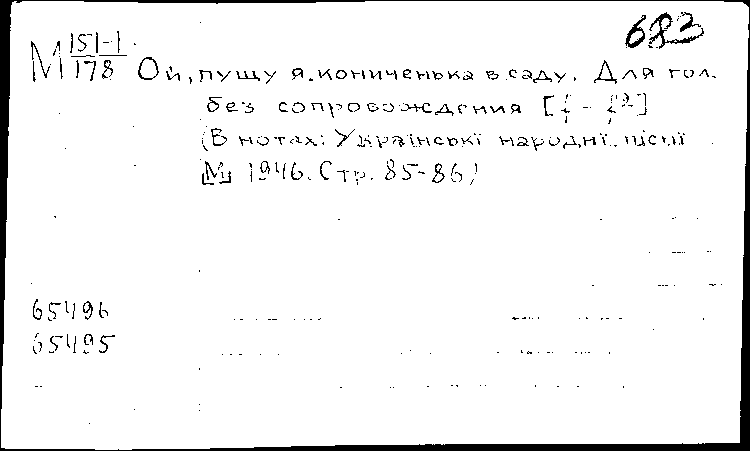 683
М 151-1/178 Ой, пущу я кониченька в саду. Для гол.
без сопровождения [f - f2]
(В нотах: Українські народні пісні
М 1946. Стр. 85-86)
65496
65495